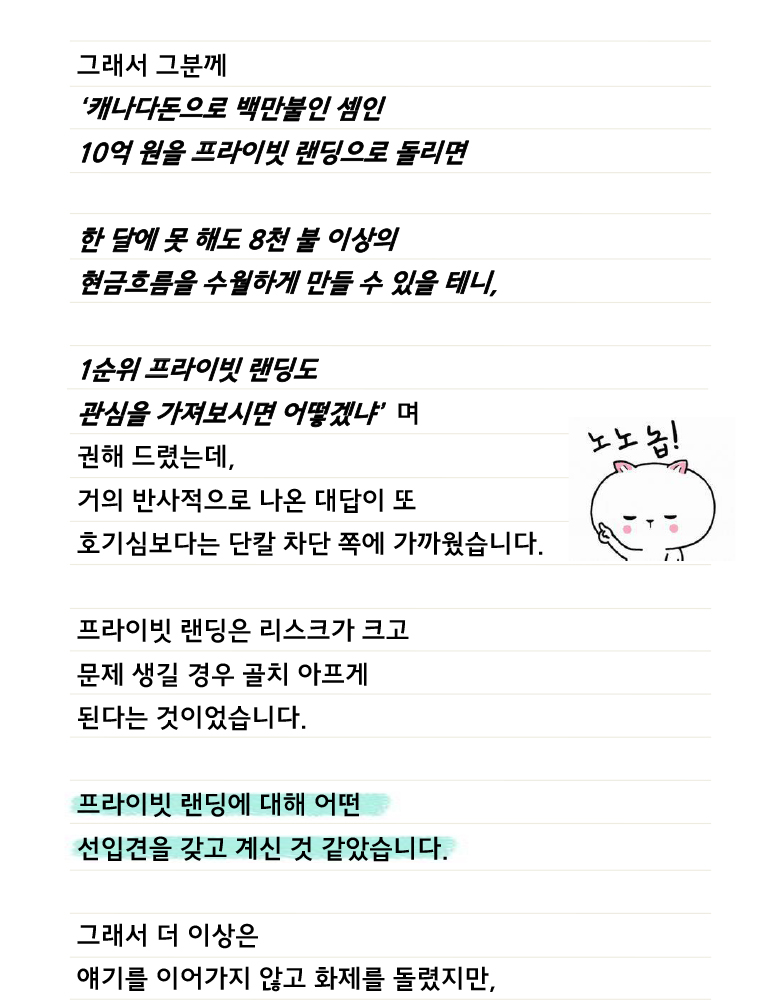 그래서 그분께
‘캐나다돈으로 백만불인 셈인
10억 원을 프라이빗 랜딩으로 돌리면
한 달에 못 해도 8천 불 이상의
현금흐름을 수월하게 만들 수 있을 테니,
1순위 프라이빗 랜딩도
관심을 가져보시면 어떻겠냐’ 며
노노 놉!
권해 드렸는데,
거의 반사적으로 나온 대답이 또
호기심보다는 단칼 차단 쪽에 가까웠습니다.
프라이빗 랜딩은 리스크가 크고
문제 생길 경우 골치 아프게
된다는 것이었습니다.
프라이빗 랜딩에 대해 어떤
선입견을 갖고 계신 것 같았습니다.
그래서 더 이상은
얘기를 이어가지 않고 화제를 돌렸지만,